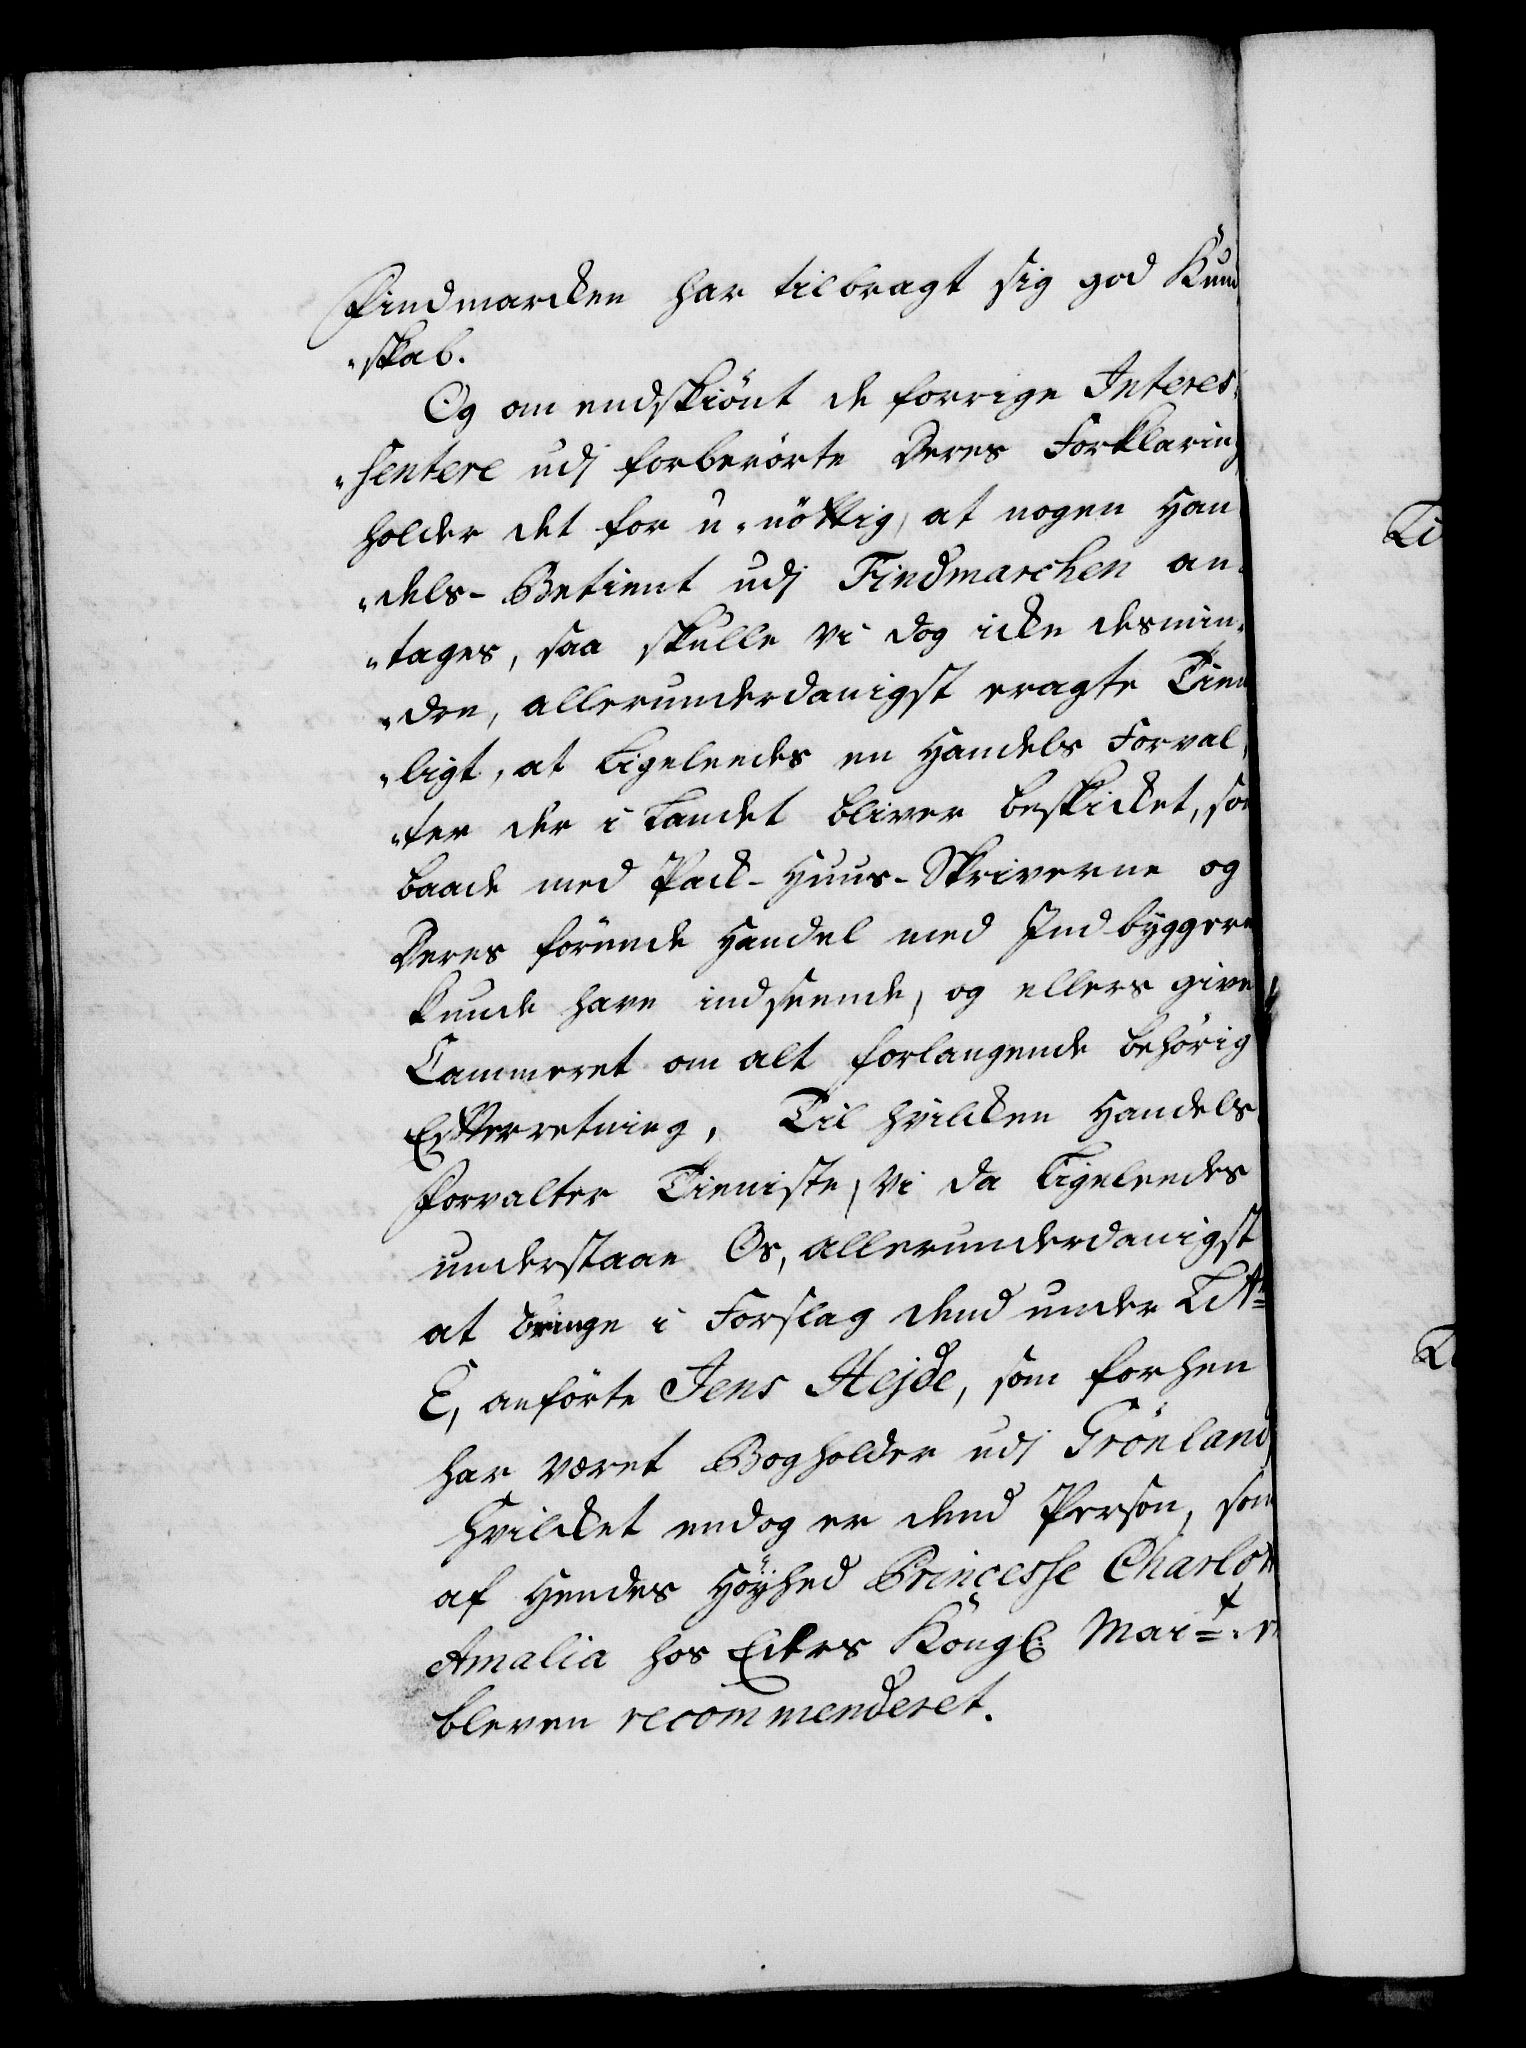 Findmarcken har tilbragt sig god Kund
"skab.
Og om endskiönt de forrige Interes,
"sentere udj forberörte Deres Forklaring
holder det for u-nöttig, at nogen Han
"dels-Betient udj Findmarchen an,
"tages, saa skulle Vi dog icke desmin,
"dre, allerunderdanigst eragte Tien
"ligt, at Ligeleedes en Handels Forval,
"ter der i Landet bliver beskicket, som
baade med Pack-Huus-Skriverne og
Deres förende Handel med Indbyggern
kunde have indseende, og ellers give
Cammeret om alt forlangende behörig
Efterretning, Til hvilcken Handels
Forvalter Tieniste, Vi da Ligeleedes
understaae Os, allerunderdanigst
at bringe i Forslag dend under Litr=
E, anförte Jens Hejde, som forhen
har været Bogholder udj Grönland
hvilcket endog er dend Person, som
af Hendes Höyhed Princesse Charlott
Amalia hos Eders Köngl: Mait= er
bleven recommenderet.
Li
Li